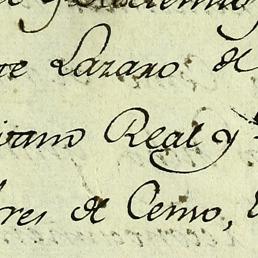 te Lazaro de
ivano Real y
res de Censo,